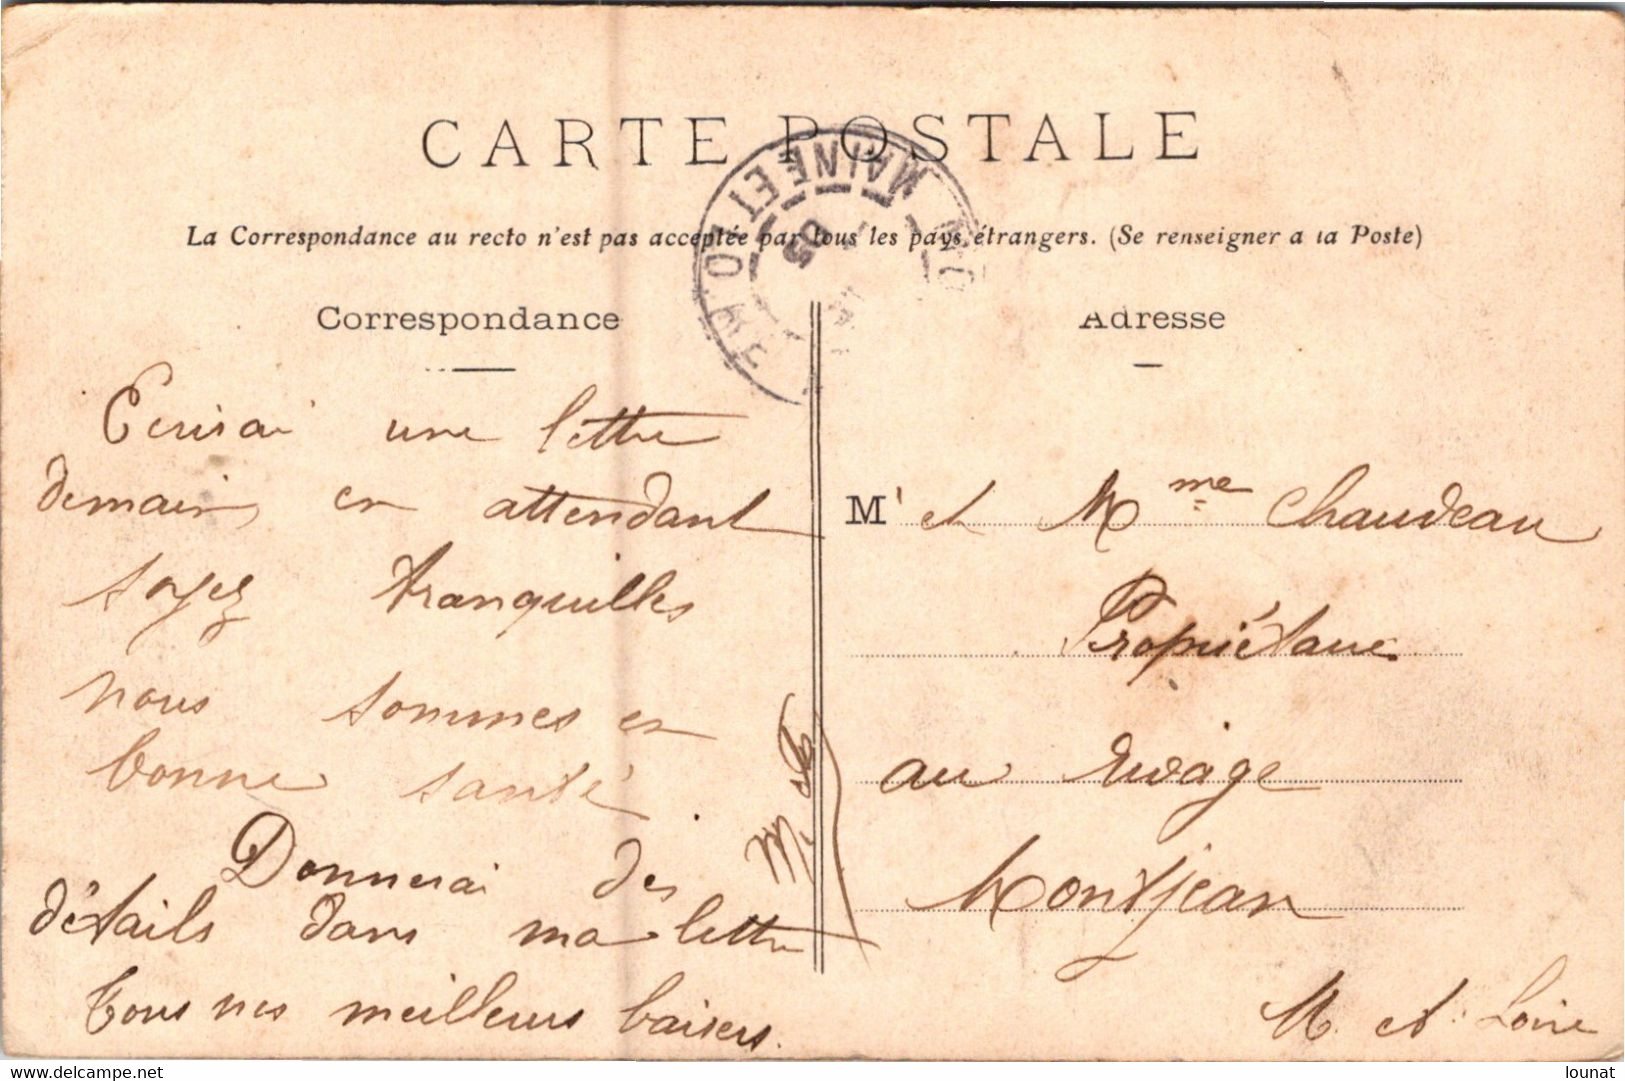 CARTE POSTALE
La Correspondance au recto n'est pas acceptée par tous les pays étrangers. (Se renseigner a la Poste)
MAINE ET
05
Correspondance
Ecrirai une lettre
demain en attendant
soyez tranquilles
nous sommes en
bonne santé.
Donnerai des
détails dans ma lettre
Tous nos meilleurs baisers.
Adresse
M' et Mme Chaudeau
Propriétaire
au rivage
Montjean
M. et Loire
www.delcampe.net
lounat